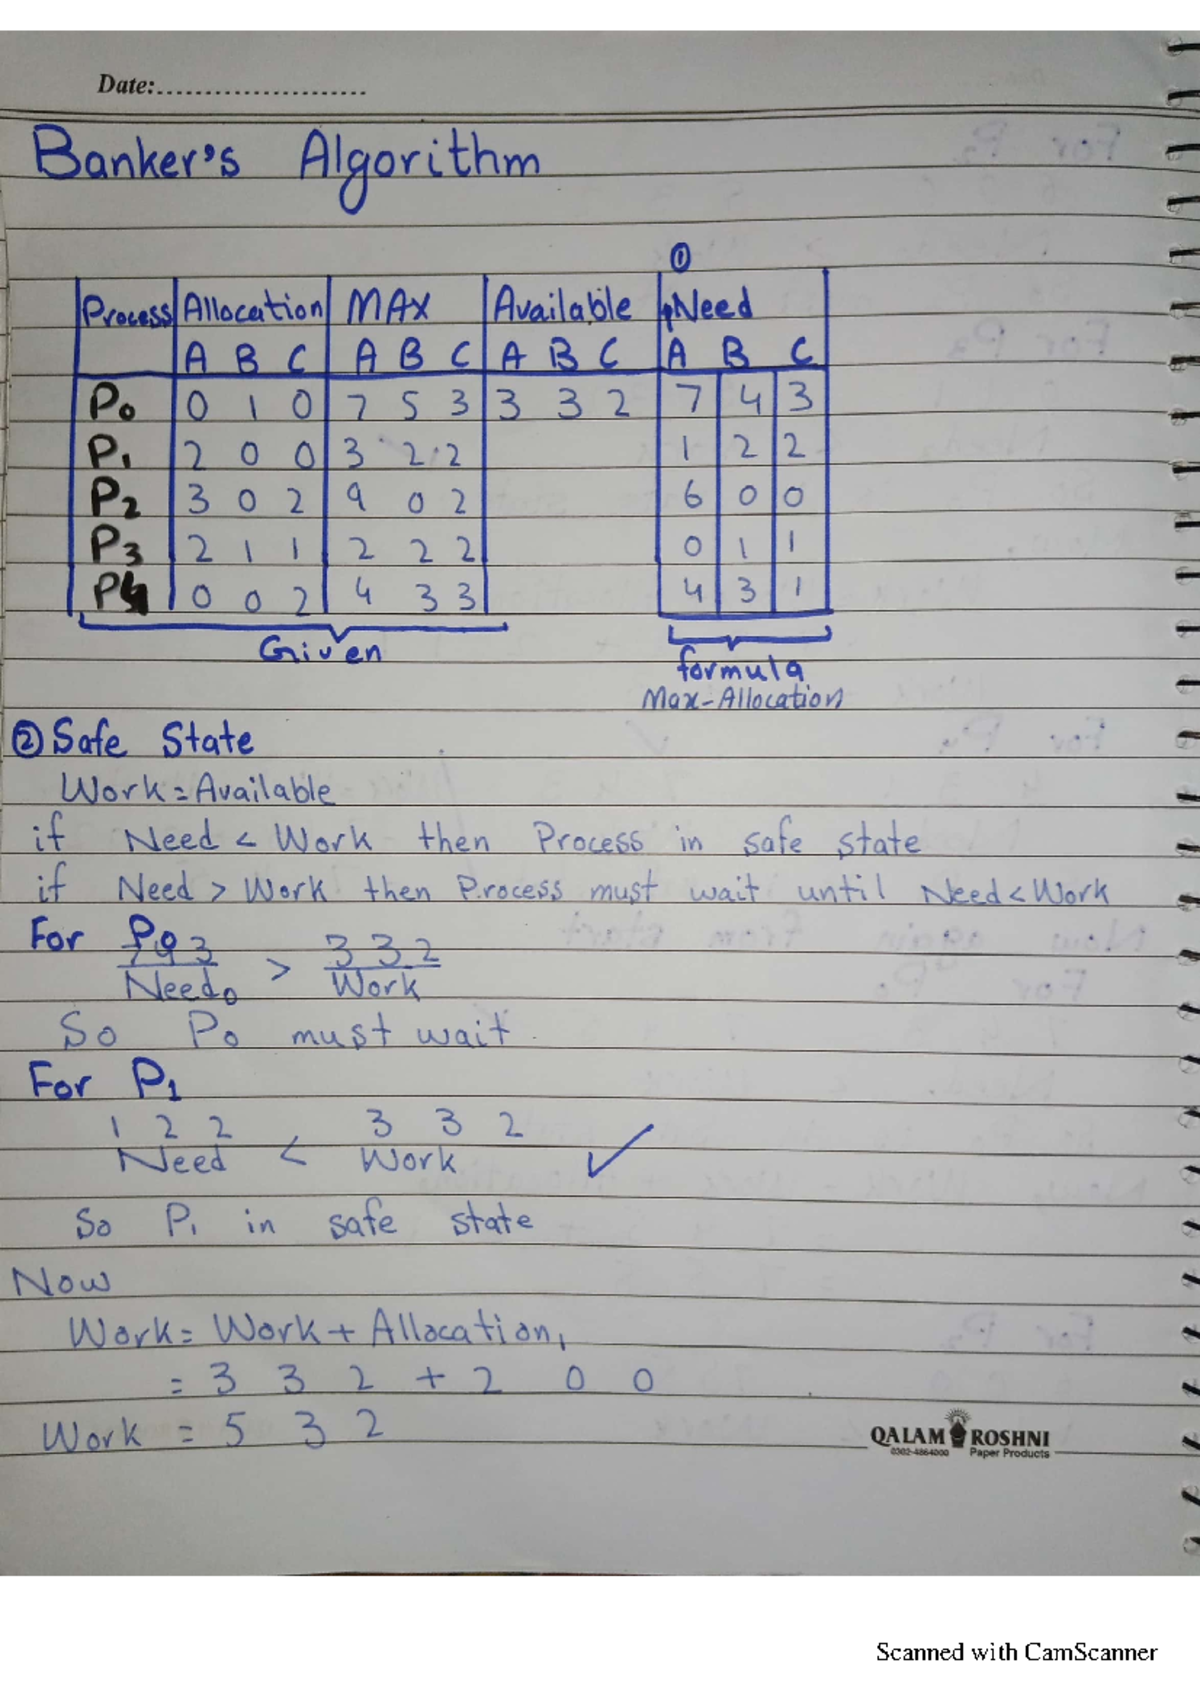 Date:......................
Banker's Algorithm
①
Process Allocation MAX Available Need
A B C A B C A B C A B C
P0 0 1 0 7 5 3 3 3 2 7 4 3
P1 2 0 0 3 2 2 1 2 2
P2 3 0 2 9 0 2 6 0 0
P3 2 1 1 2 2 2 0 1 1
P4 0 0 2 4 3 3 4 3 1
Given
formula
Max-Allocation
② Safe State
Work = Available
if Need < Work then Process in safe state
if Need > Work then Process must wait until Need < Work
For P0
7 4 3 > 3 3 2
Need0 Work
So P0 must wait
For P1
1 2 2 3 3 2
Need < Work ✓
So P1 in safe state
Now
Work = Work + Allocation1
= 3 3 2 + 2 0 0
Work = 5 3 2
QALAM ROSHNI
0302-4864000 Paper Products
Scanned with CamScanner